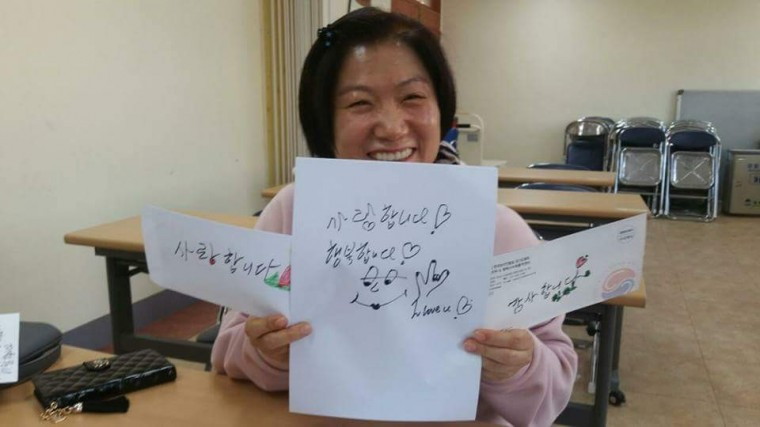 사랑합니다
사랑합니다♡
행복합니다♡
I Love u♡
감사합니다